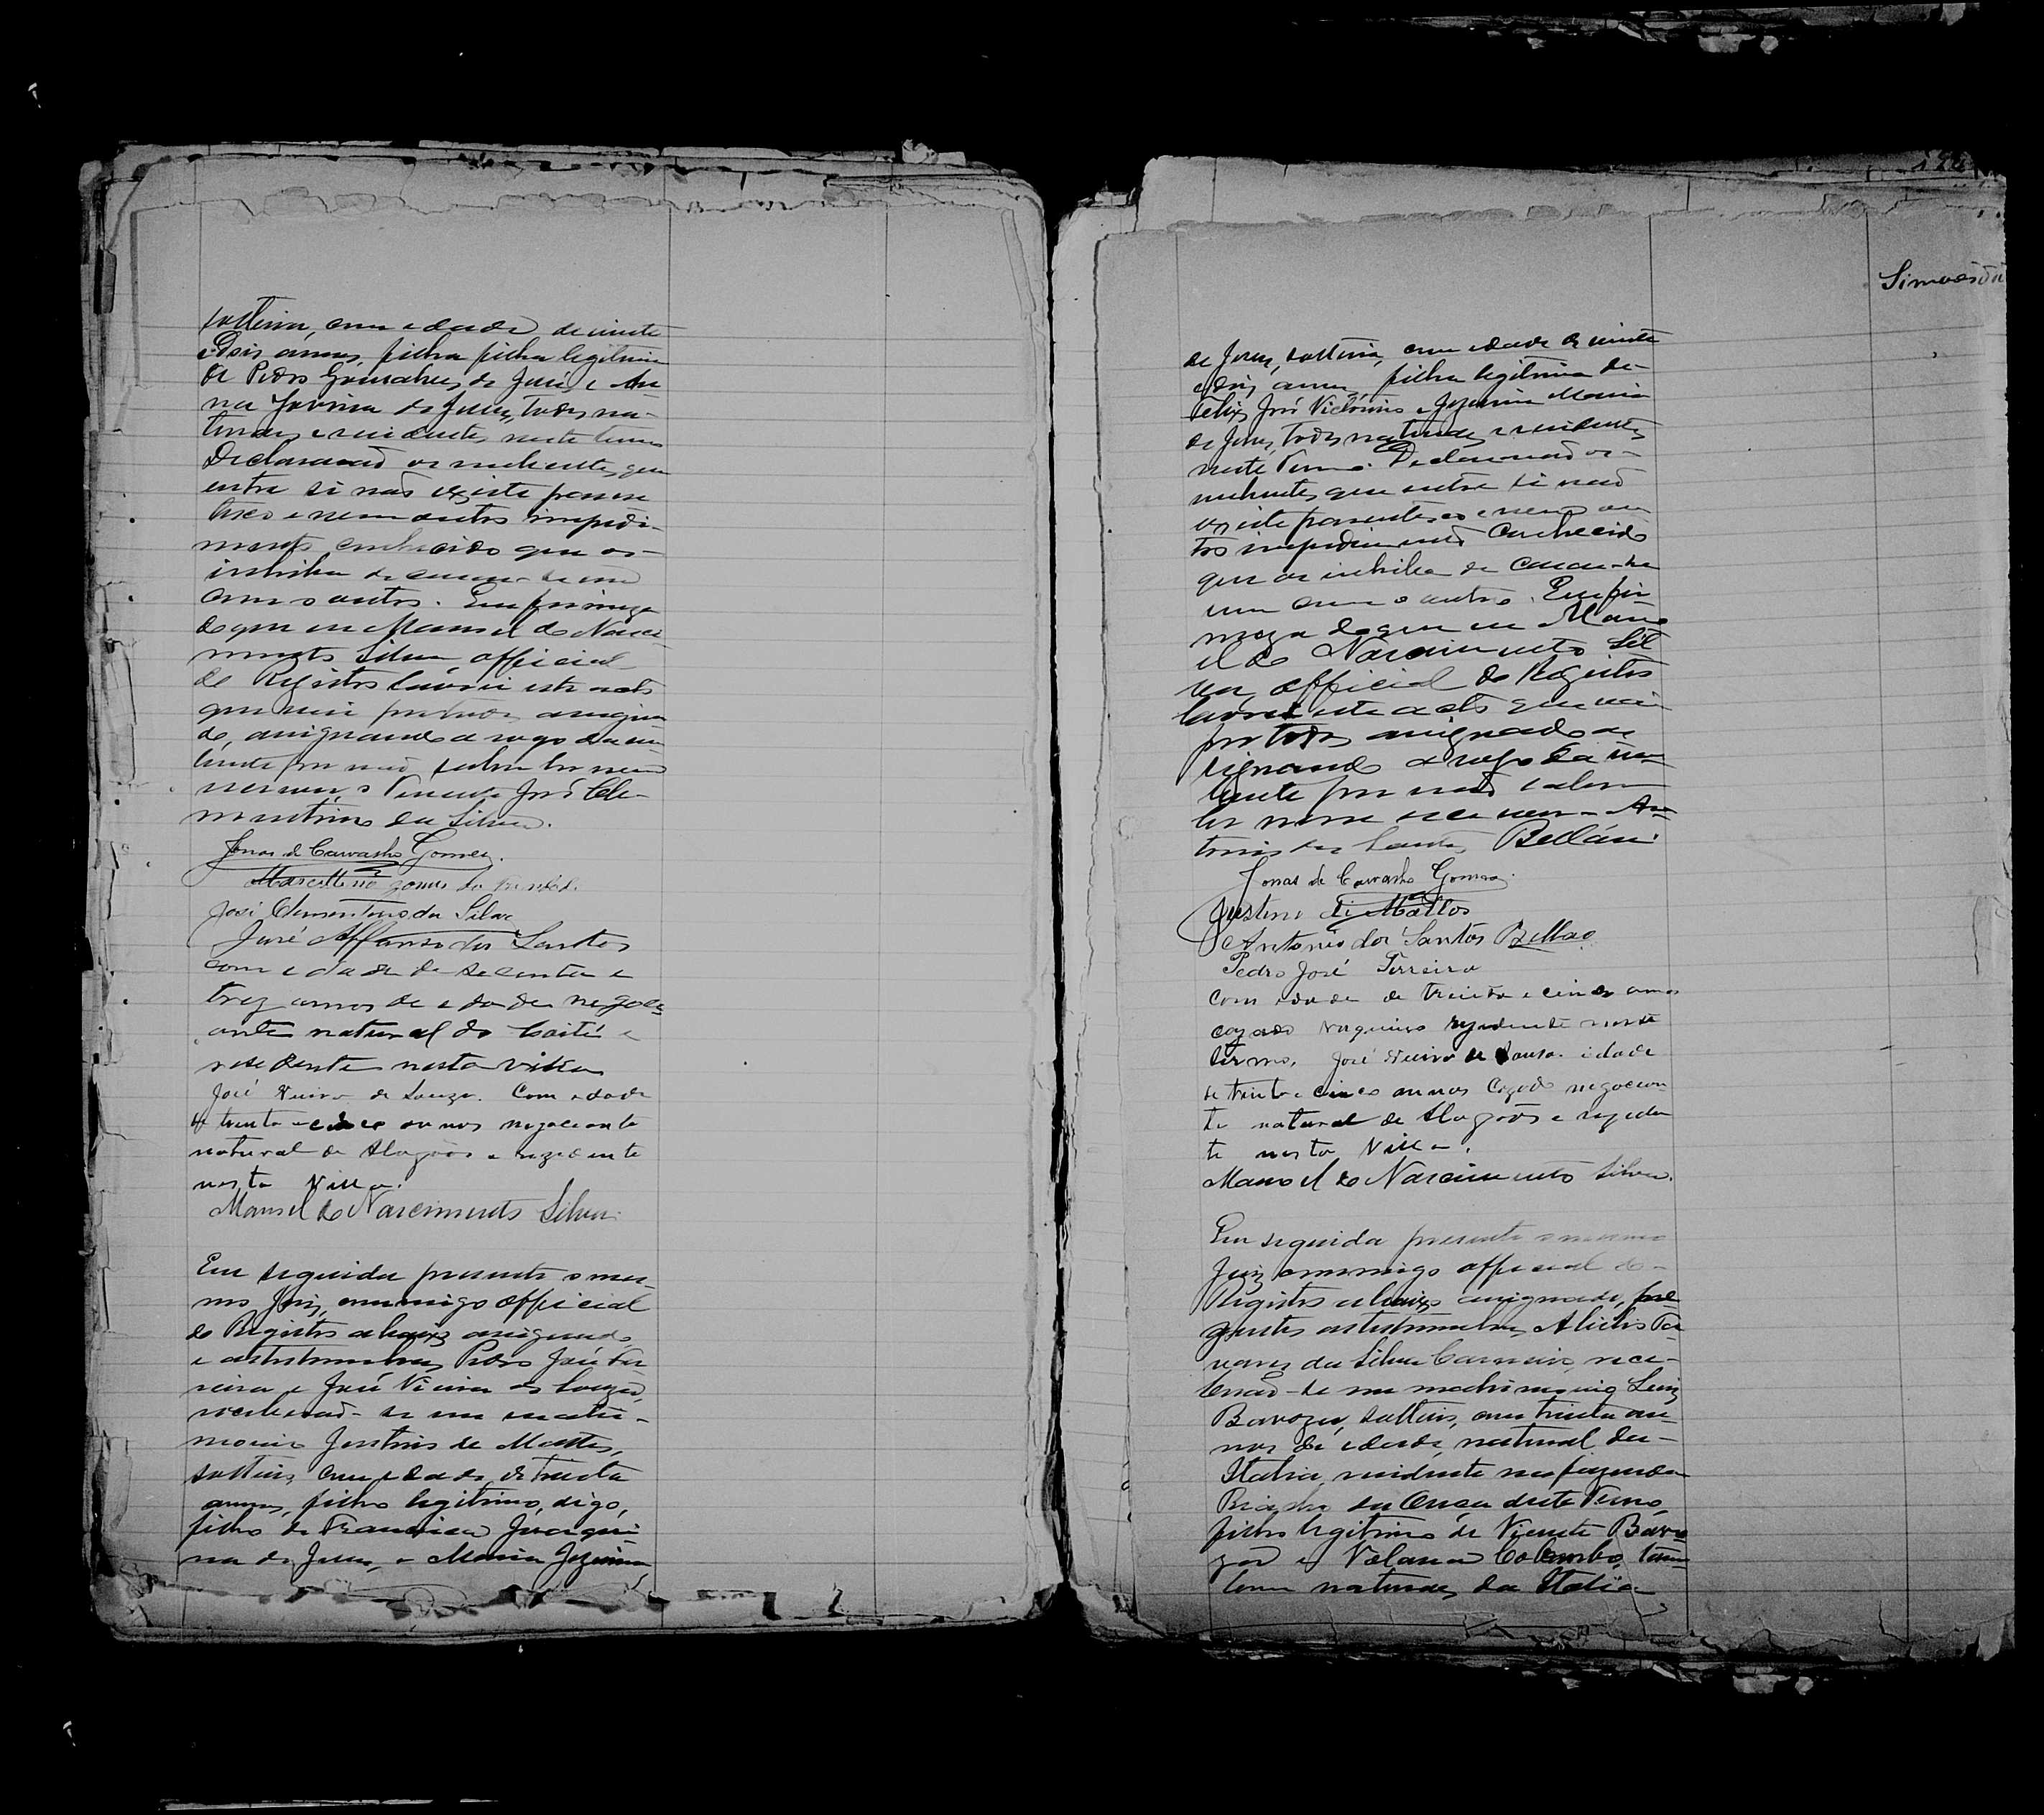 solteira, com edade de vinte
e Dois annos, filha filha legitima
de Pedro Gonsalves de Jesus, e An-
na Jovina de Jesus, todos na-
turaes e residentes neste termo
Declararaõ os nubentes, que
entre si naõ existe paren-
tesco e nem outro impedi-
mento conhecido que os
inhiba de casar-se um
com o outro. Em firmeza
do que eu Manoel do Nasci
mento Silva, official
do Registro lavrei este acto
que vai por todos assigna
do, assignando a rogo da nu
bente por naõ saber ler nem
escrever, o Tenente José Cle-
mentino da Silva.
Jonas de Carvalho Gomes.
Marcellino Gomes da
José Clementino da Silva
José Affonso dos Santos
com edade de secenta e
trez annos de edade negoci
ante natural do Coité e
residente nesta villa
José Vieira de Souza. Com edade
de trinta e cinco annos negociante
natural de Alagoas e rezidente
nesta Villa.
Manoel do Nascimento Silva.
Em seguida presente o mes-
mo Juiz, commigo official
do Registro abaixo assignado
e as testemunhas Pedro José Fer
reira e José Vieira de Souza,
receberaõ-se em matri-
monio Justino de Mattos,
solteiro, com edade de trinta
annos, filho legitimo, digo,
filho de Francisca Joaqui
na de Jesus, e Maria Jozefina
Simões da
de Jesus, solteira, com edade de vinte
e dois annos, filha legitima de
Felix José Victorino e Jozefina Maria
de Jesus, todos naturaes e residentes
neste Termo. Declararaõ os
nubentes, que entre si naõ
existe parentesco e nem ou
tro impedimento conhecido
que os inhiba de casar-se
um com o outro. Em fir
meza do que eu Mano
el do Nascimento Sil
va, official do Registro
lavrei este acto que vai
por todos assignado as
signando a rogo da nu-
bente por naõ saber
ler nem escrever An-
tonio dos Santos Bellaõ.
Jonas de Carvalho Gomes.
Justino de Mattos
Antonio dos Santos Bellao
Pedro José Ferreira
com edade de trinta e cinco annos
cazado Vaqueiro rezidente neste
termo, José Vieira de Souza. idade
de trinta e cinco annos Cazado negocian
te natural de Alagoas e reziden
te nesta Villa.
Manoel do Nascimento Silva.
Em seguida presente o mesmo
Juiz commigo official do
Registro abaixo assignado, pre
zentes as testemunhas Ta
vares da Silva Carneiro, rece-
beraõ-se em matrimonio Luiz
solteiro, com trinta an-
nos de edade, natural da
Italia, residente na fazenda
Riacho da Onça deste Termo,
filho legitimo de Vicente
e Colombo, tam
bem naturaes da Italia